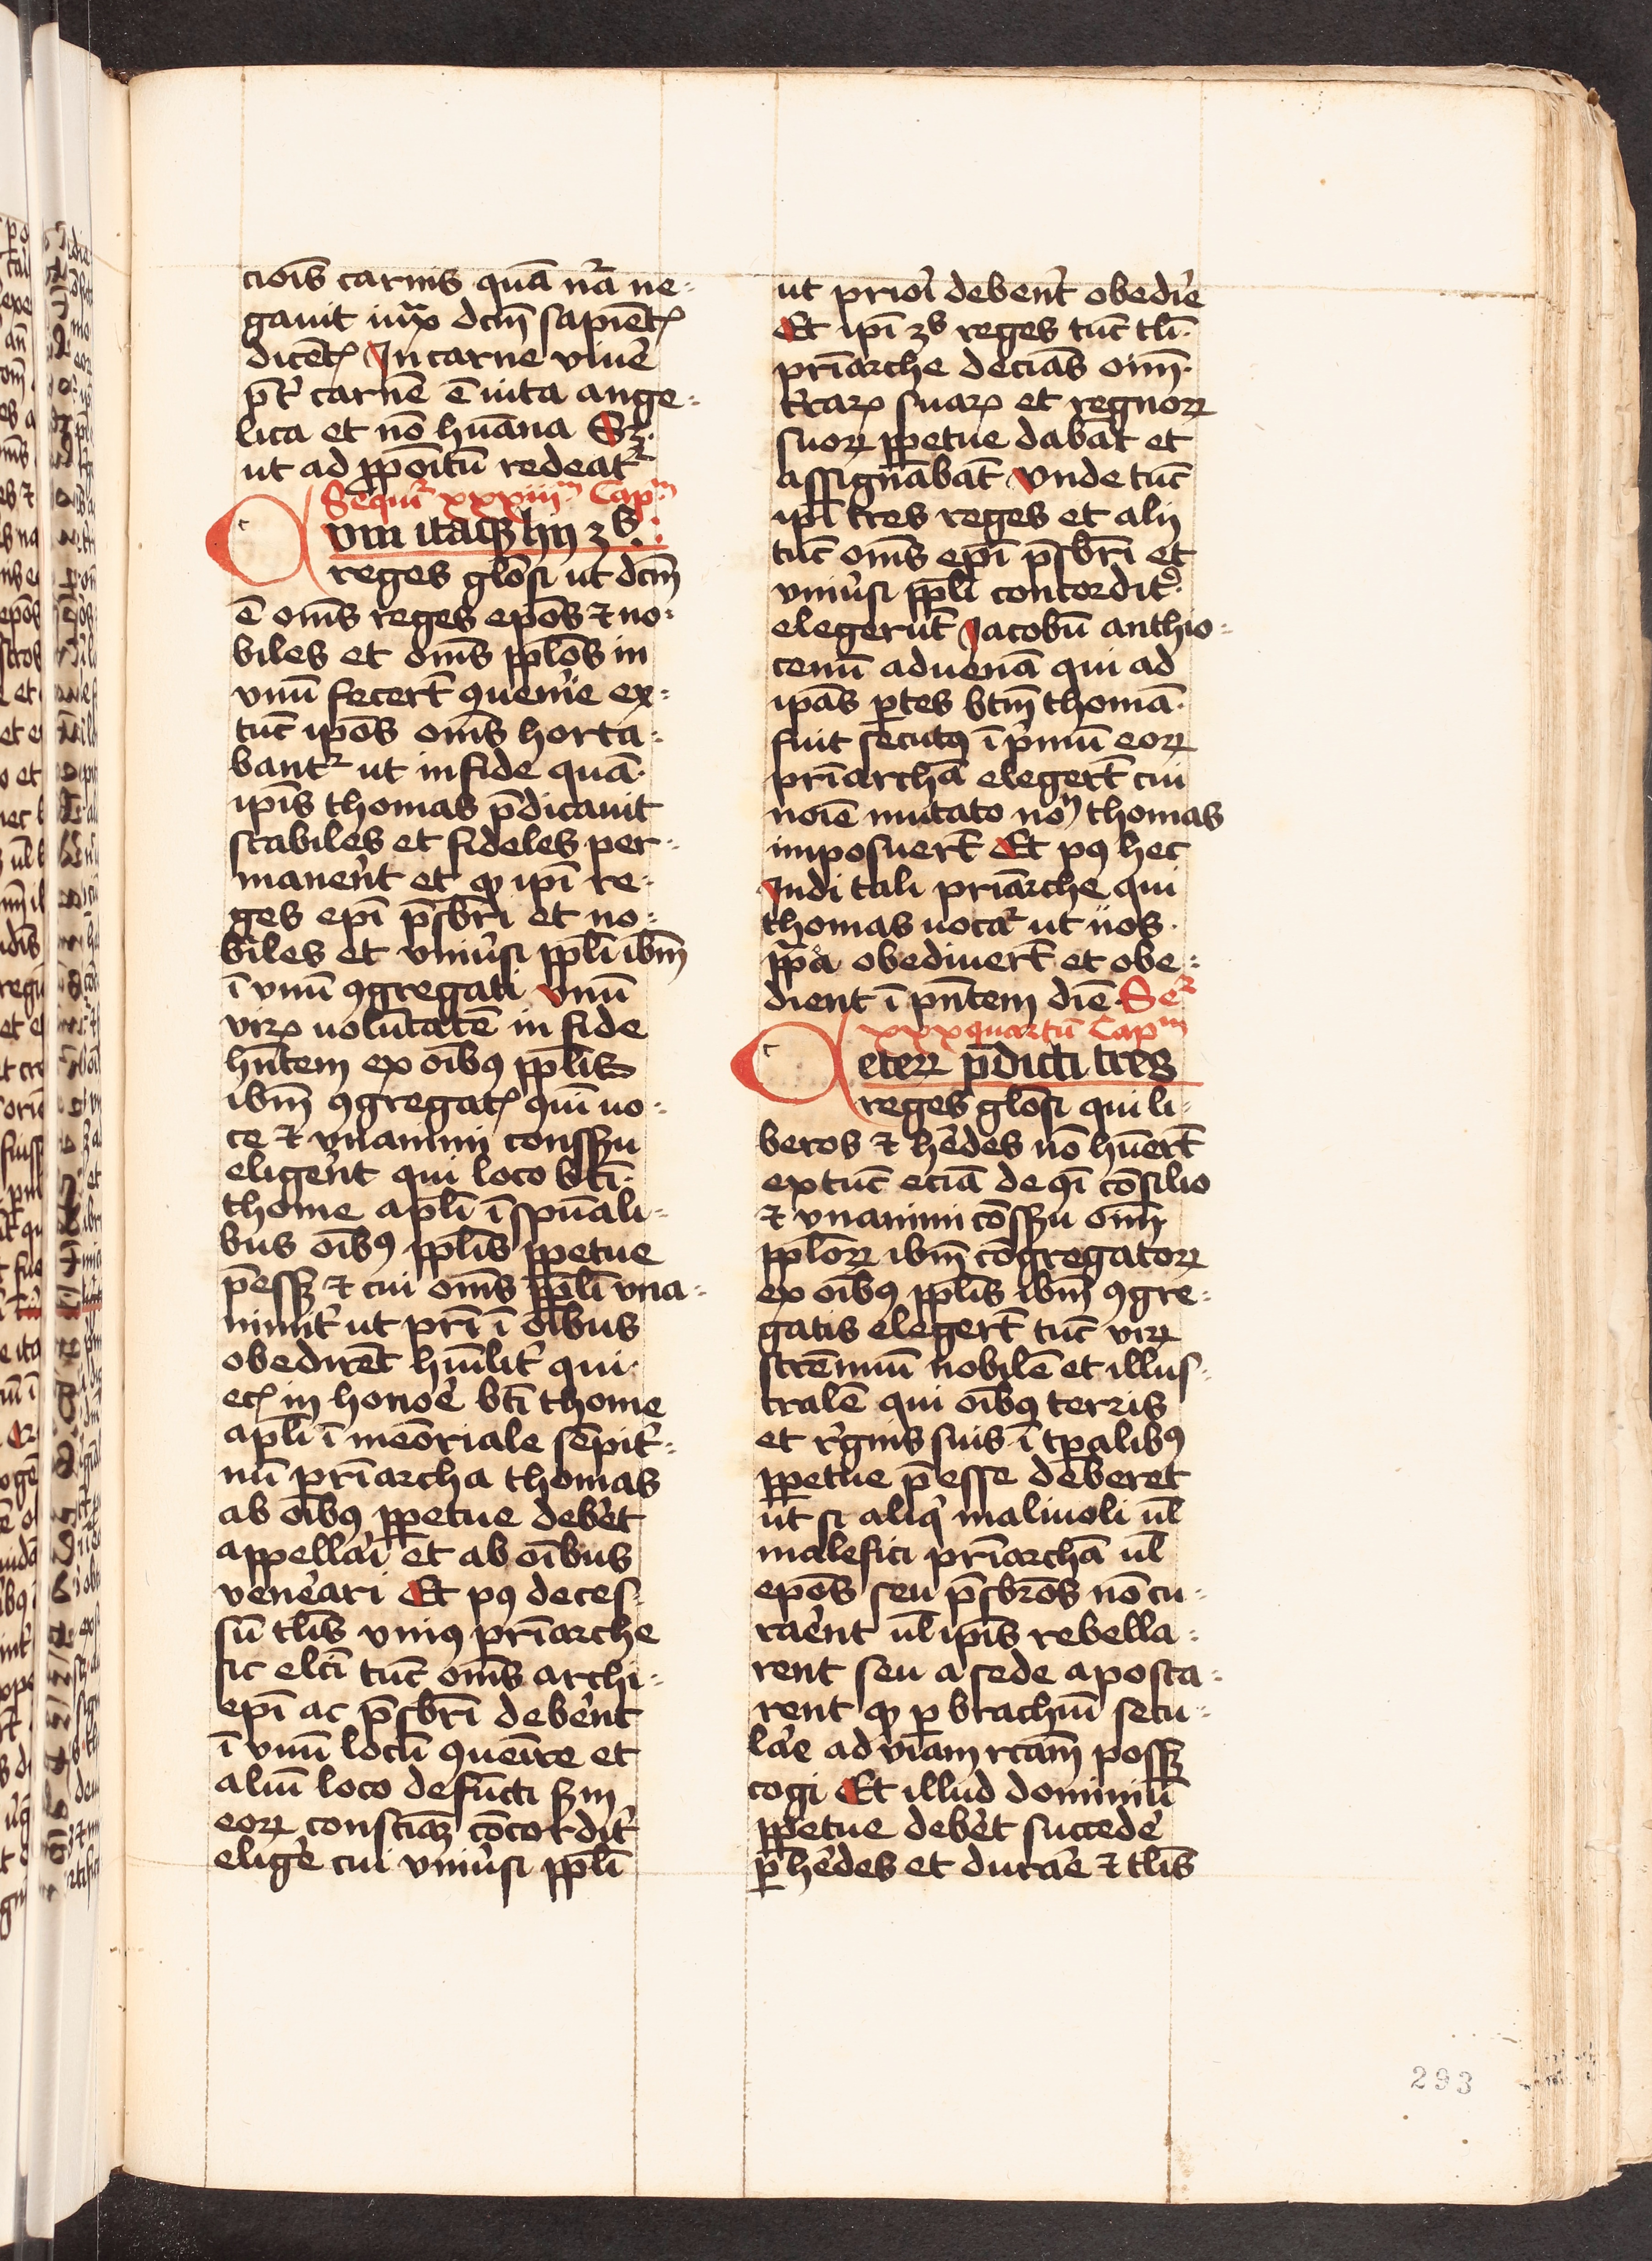 cioīs carnis quā nr̄a ne⸗
gauit iux̄ dcm̄ sapiētꝭ
dicētꝭ In carne viuē
p̄t̕ carnē ē uita ange⸗
lica et nō hūana Sꝫ
ut ad ꝓpoītū redeat᷑
Sequi᷑ xxxiiiᵐ Capᵐ
Cvm itaqꝫ hij ꝫꝰ
reges glōsi ut dcm̄
ē om̄s reges ep̄os ⁊ no⸗
biles et om̄s ppl̄os in
vnū fecer̄t ꝯuenīe ex⸗
tūc ip̄os om̄s horta⸗
bant᷑ ut in fide quā
ip̄is thomas p̄dicauit
stabiles et fideles per⸗
manēnt et ꝙ ip̄i re⸗
ges ep̄i p̄sbr̄i et no⸗
biles et vniu̕si ppl̄i ibm̄
ī vnū ꝯgregati vnū
virꝝ uolūtatē in fide
hn̄tem ex oībꝰ ppl̄is
ibm̄ ꝯgregatꝭ quī uo⸗
ce ⁊ vnanimi conssꝫu
eligēnt qui loco bt̄i
thome apl̄i ī spūali⸗
bus oībꝰ ppl̄is ꝑpetue
p̄essꝫ ⁊ cui om̄s ppl̄i vna⸗
nimit̕ ut pr̄i ī oībus
obedirēt hūilit̕ qui
ecꝭ in honoē bt̄i thome
apl̄i ī meōriale sēpit̕⸗
nū pr̄iarcha thomas
ab oībꝰ ꝑpetue debēt
appellāi et ab oībus
venēari Et pꝰ deces⸗
sū tl̄is vniꝰ pr̄iarche
sic elc̄i tūc om̄s archi⸗
ep̄i ac p̄sbr̄i debēnt
ī vnū locū ꝯueīre et
aliū loco defūcti ẜm
eoꝝ consciāꝫ cōcordit̕
eligē cui vniu̕si ppl̄i
ut prioī debēnt obedīe
Et ip̄i ꝫꝰ reges tūc tl̄i
pr̄iarche decīas oīm
t̕raꝝ suaꝝ et regnoꝝ
suoꝝ ꝑpetue dabāt et
assignābāt Vnde tūc
ip̄i tres reges et alij
tūc om̄s ep̄i p̄sbr̄i et
vniu̕si ppl̄i concordit̕
elegerūt Jacobū anthio⸗
cenū aduenā qui ad
ip̄as ꝑtes btm̄ thomā
fuit secutꝰ ī pͥmū eoꝝ
pr̄iarchā eleger̄t cui
noīe mutato noᷠ thomas
imposuer̄t Et pꝰ hec
Indi tali pr̄iarche qui
thomas uoca᷑ ut nos
pp̄a obediuer̄t et obe⸗
dient ī pn̄tem diē Se᷑
xxxquartū Capᵐ
Ceteꝝ p̄dicti tres
reges glōsi qui li⸗
beros ⁊ hēdes nō hūer̄t
extūc eciā de qͥ cōsilio
⁊ vnanimi cōssꝫu oīm
ppl̄oꝝ ibm̄ cōgregatoꝝ
ex oībꝰ ppl̄is ibm̄ ꝯgre⸗
gatis eleger̄t tūc virꝝ
strēnuū nobilē et illus⸗
tralē qui oībꝰ terris
et r̕gnis suis ī tp̄alibꝰ
ꝑpetue p̄esse deberet
ut si aliqͥ maliuoli ul̄
malefici pr̄iarchā ul̄
ep̄os seu p̄sbr̄os nō cu⸗
raēnt ul̄ ip̄is rebella⸗
rent seu a fide aposta⸗
rent ꝙ ꝑ brachiū secu⸗
lāe ad viam rc̄am possꝫ
cogi Et illud dominiū
ꝑpetue debēt succedē
ꝑ hēdes et durāe ⁊ tl̄is
293